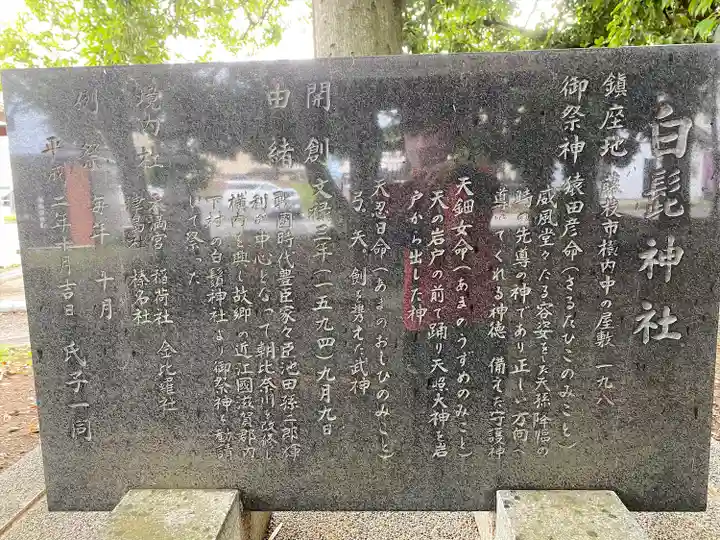 白髭神社
鎮座地 藤枝市横内中の屋敷一九八
御祭神 猿田彦命(さるたひこのみこと)
威風堂々たる容姿をした天孫降臨の
時の先導の神であり正しい方向へ
導いてくれる神徳 備えた守護神
天鈿女命(あまのうずめのみこと)
天の岩戸の前で踊り天照大神を岩
戸から出した神
天忍日命(あまのおしひのみこと)
弓、矢、剣を携えた武神
開創 文禄三年(一五九四)九月九日
由緒 戦國時代豊臣家々臣池田孫二郎輝
利が中心となって朝比奈川を改修し
横内を興し故郷の近江國滋賀郡内
下村の白鬚神社より御祭神を勧請
して祭った
境内社 天満宮 稲荷社 金比羅社
津島社 榛名社
例祭 毎年 十月
平成二年十月吉日 氏子一同